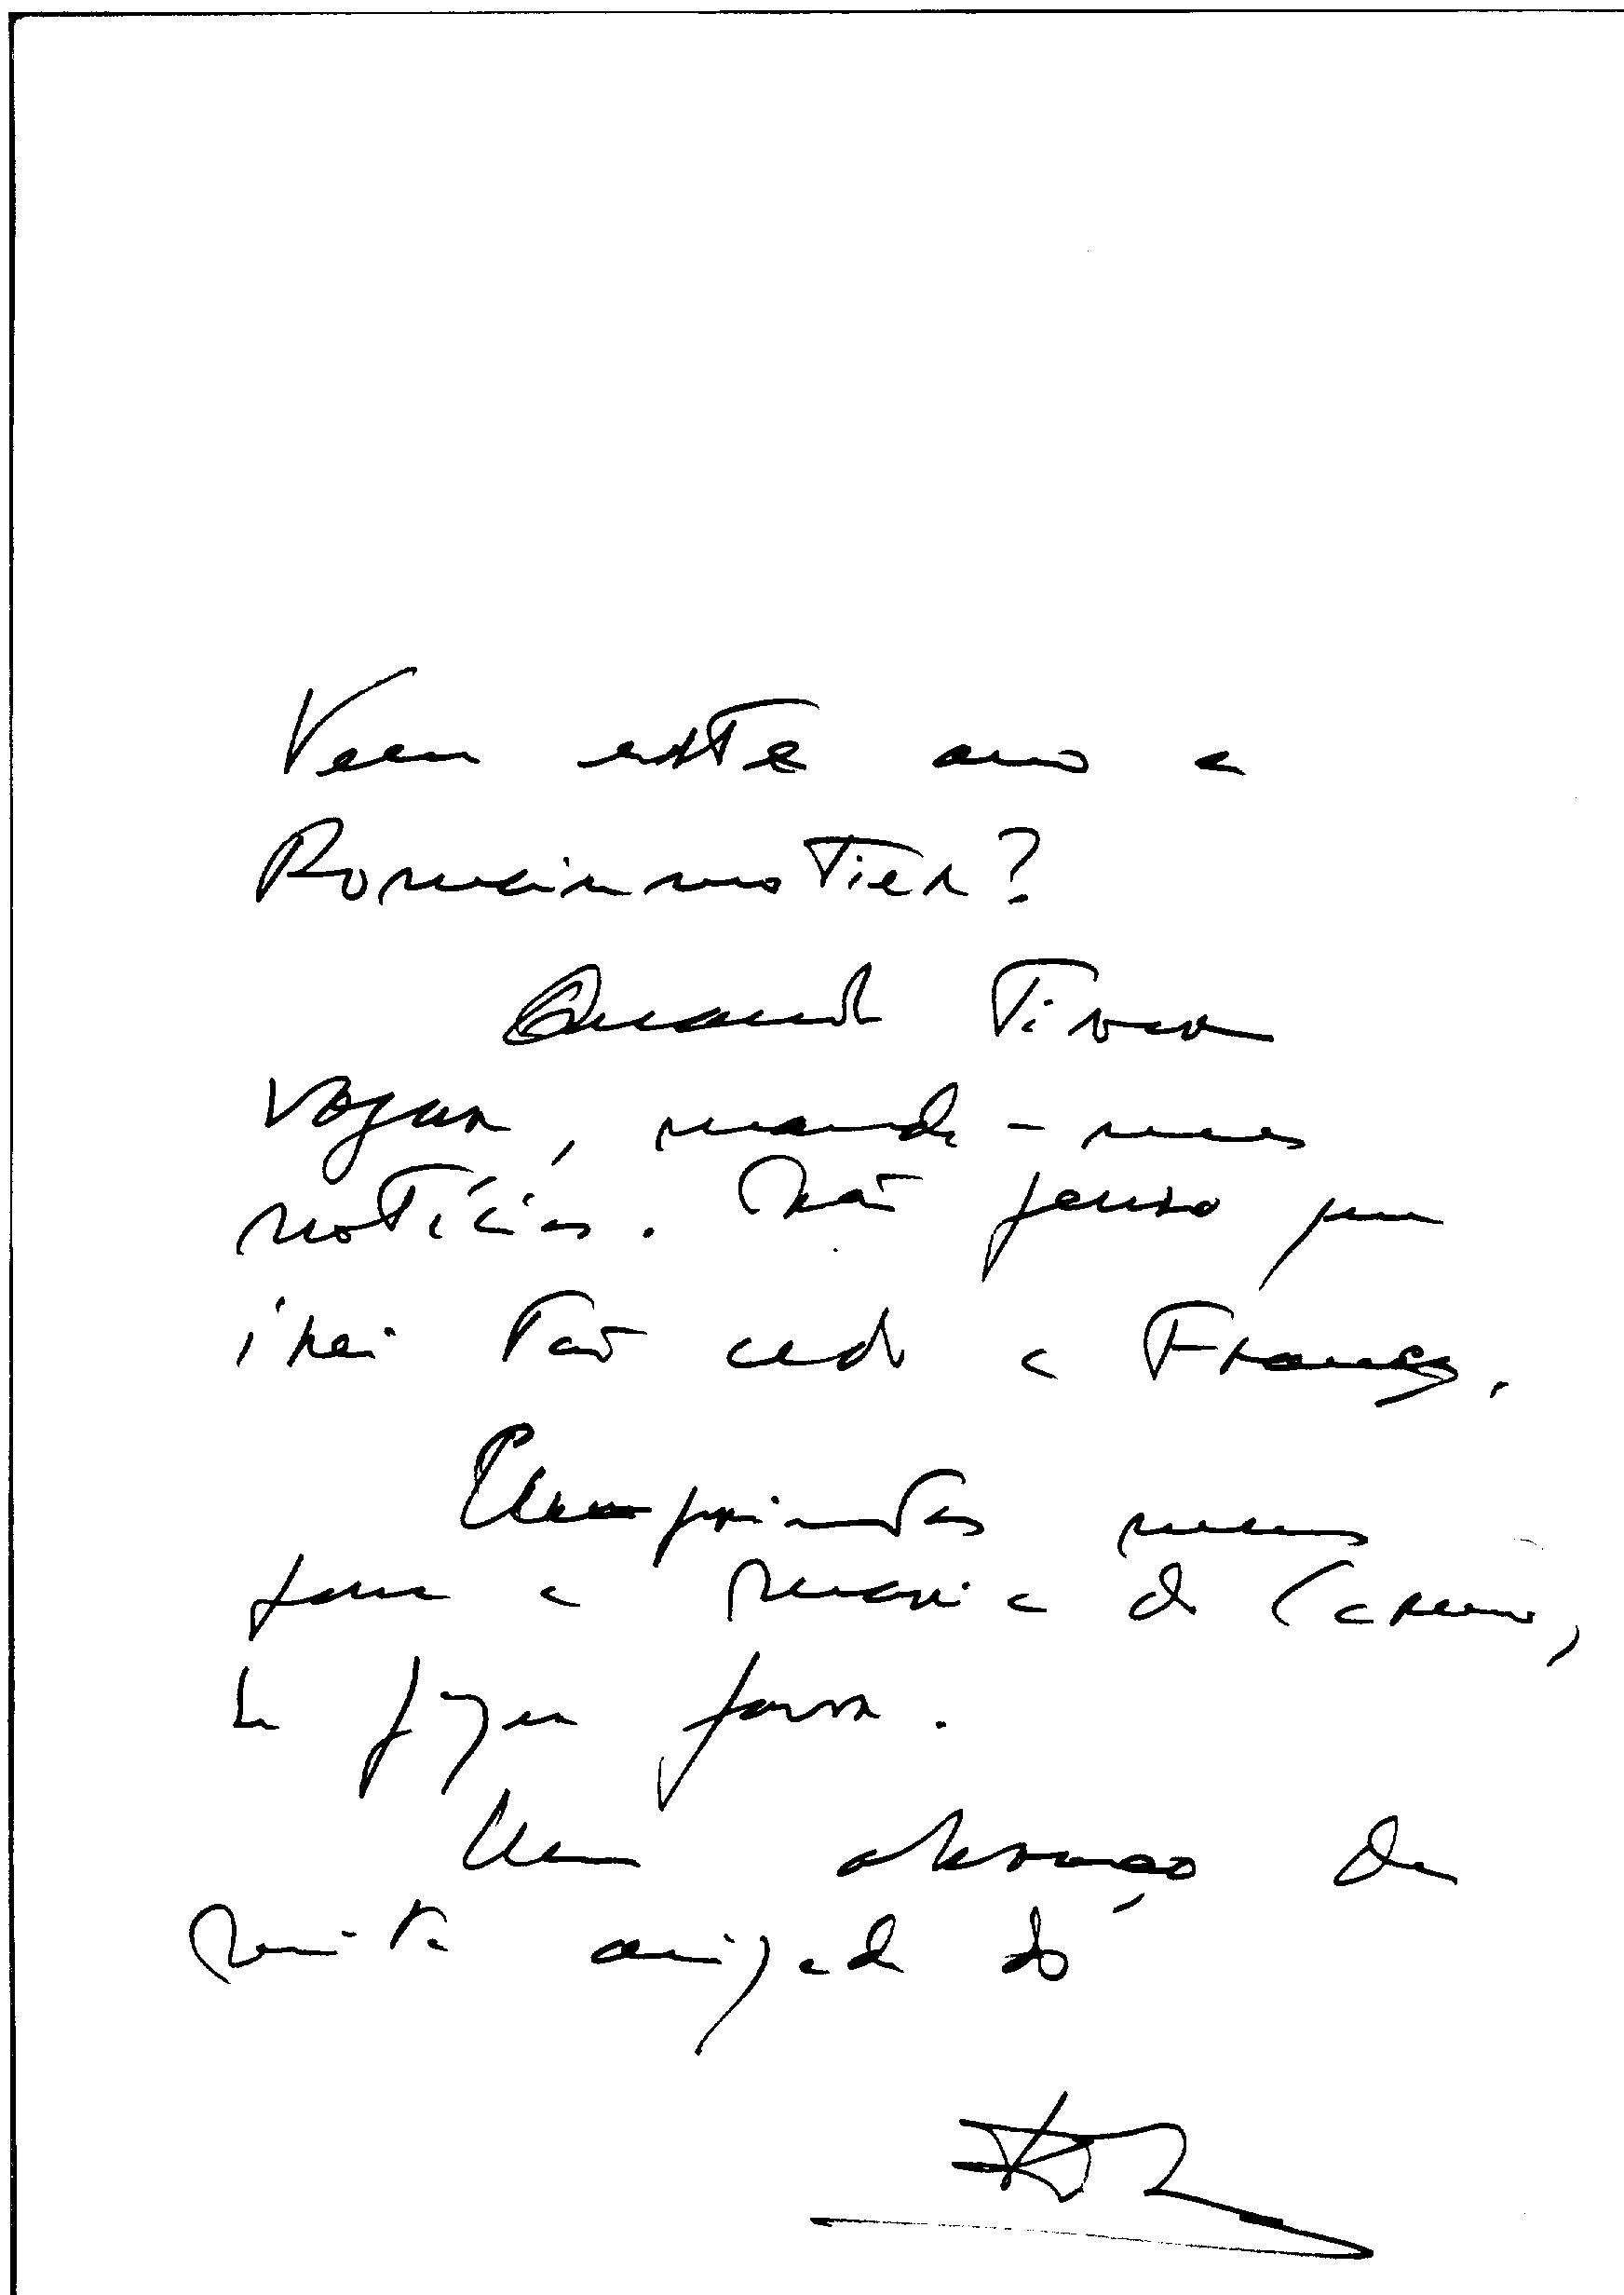 Veem este ano a
Romainmotier?
Quando tiver
vagar, mande-me
notícias. Não penso que
irei tão cedo a França.
Cumprimentos meus
para a Maria do Carmo,
se faz favor.
Um abraço de
muita amizade do